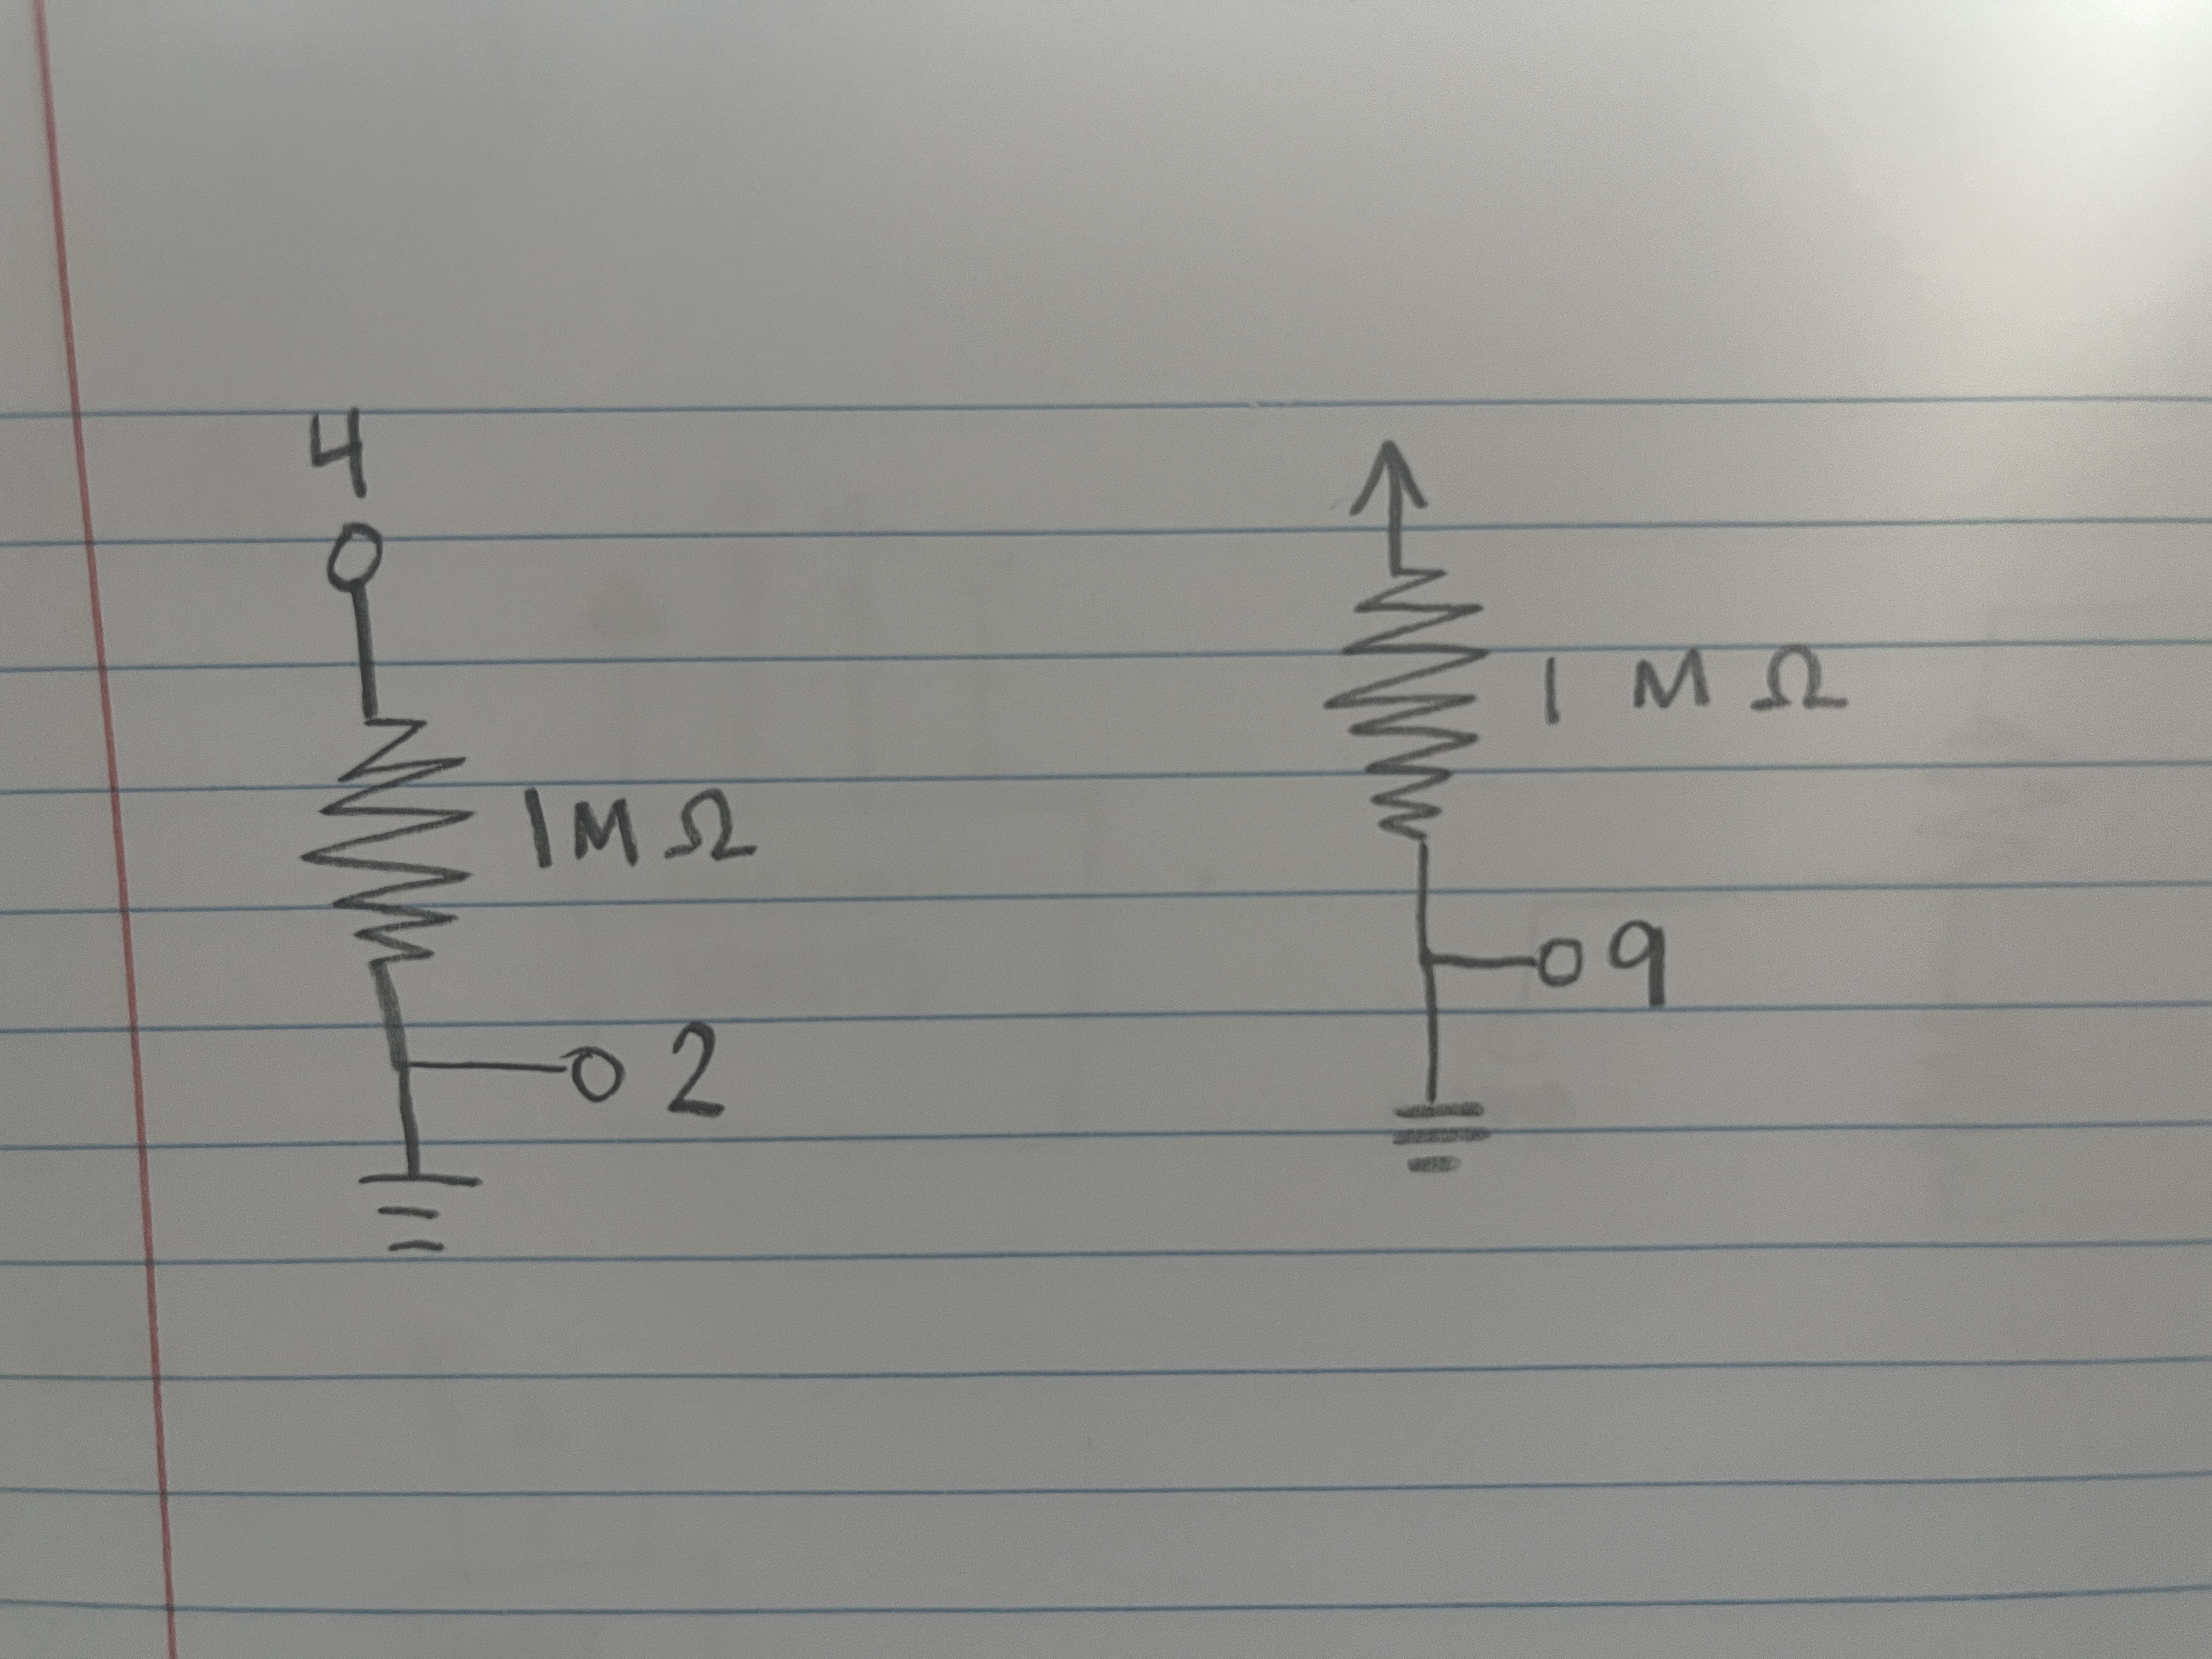 4
1MΩ
2
1 MΩ
9